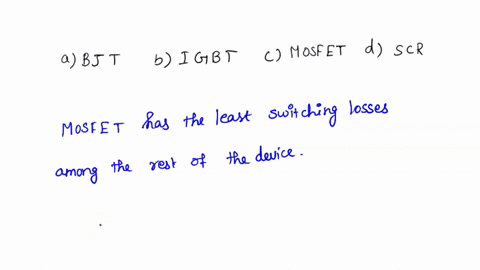 a) BJT b) IGBT c) MOSFET d) SCR
MOSFET has the least switching losses
among the rest of the device.